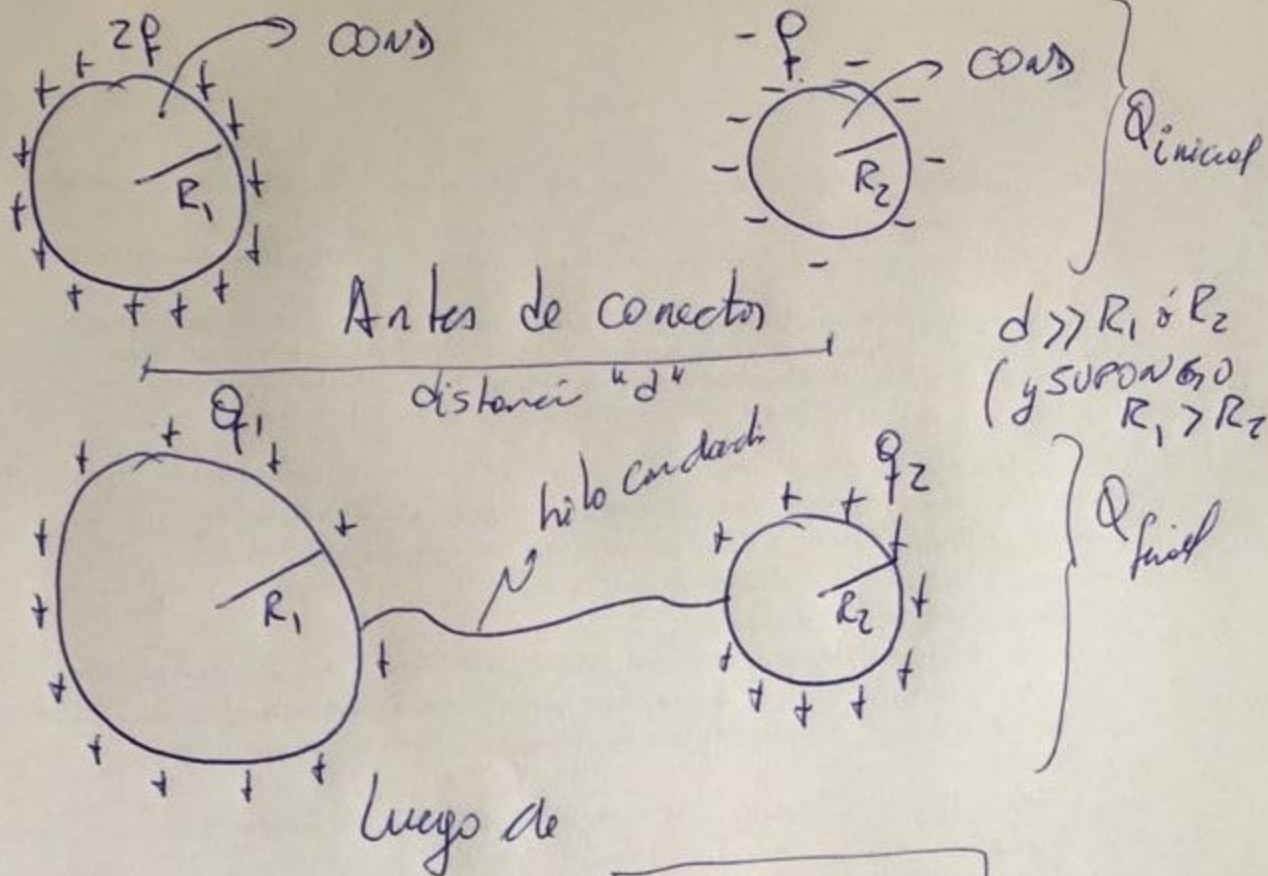 2q
COND
R₁
-q
COND
R₂
Qinicial
Antes de conectar
distancia "d"
d >> R₁ ó R₂
(y SUPONGO
R₁ > R₂
q₁
R₁
hilo
q₂
R₂
Qfinal
Luego de